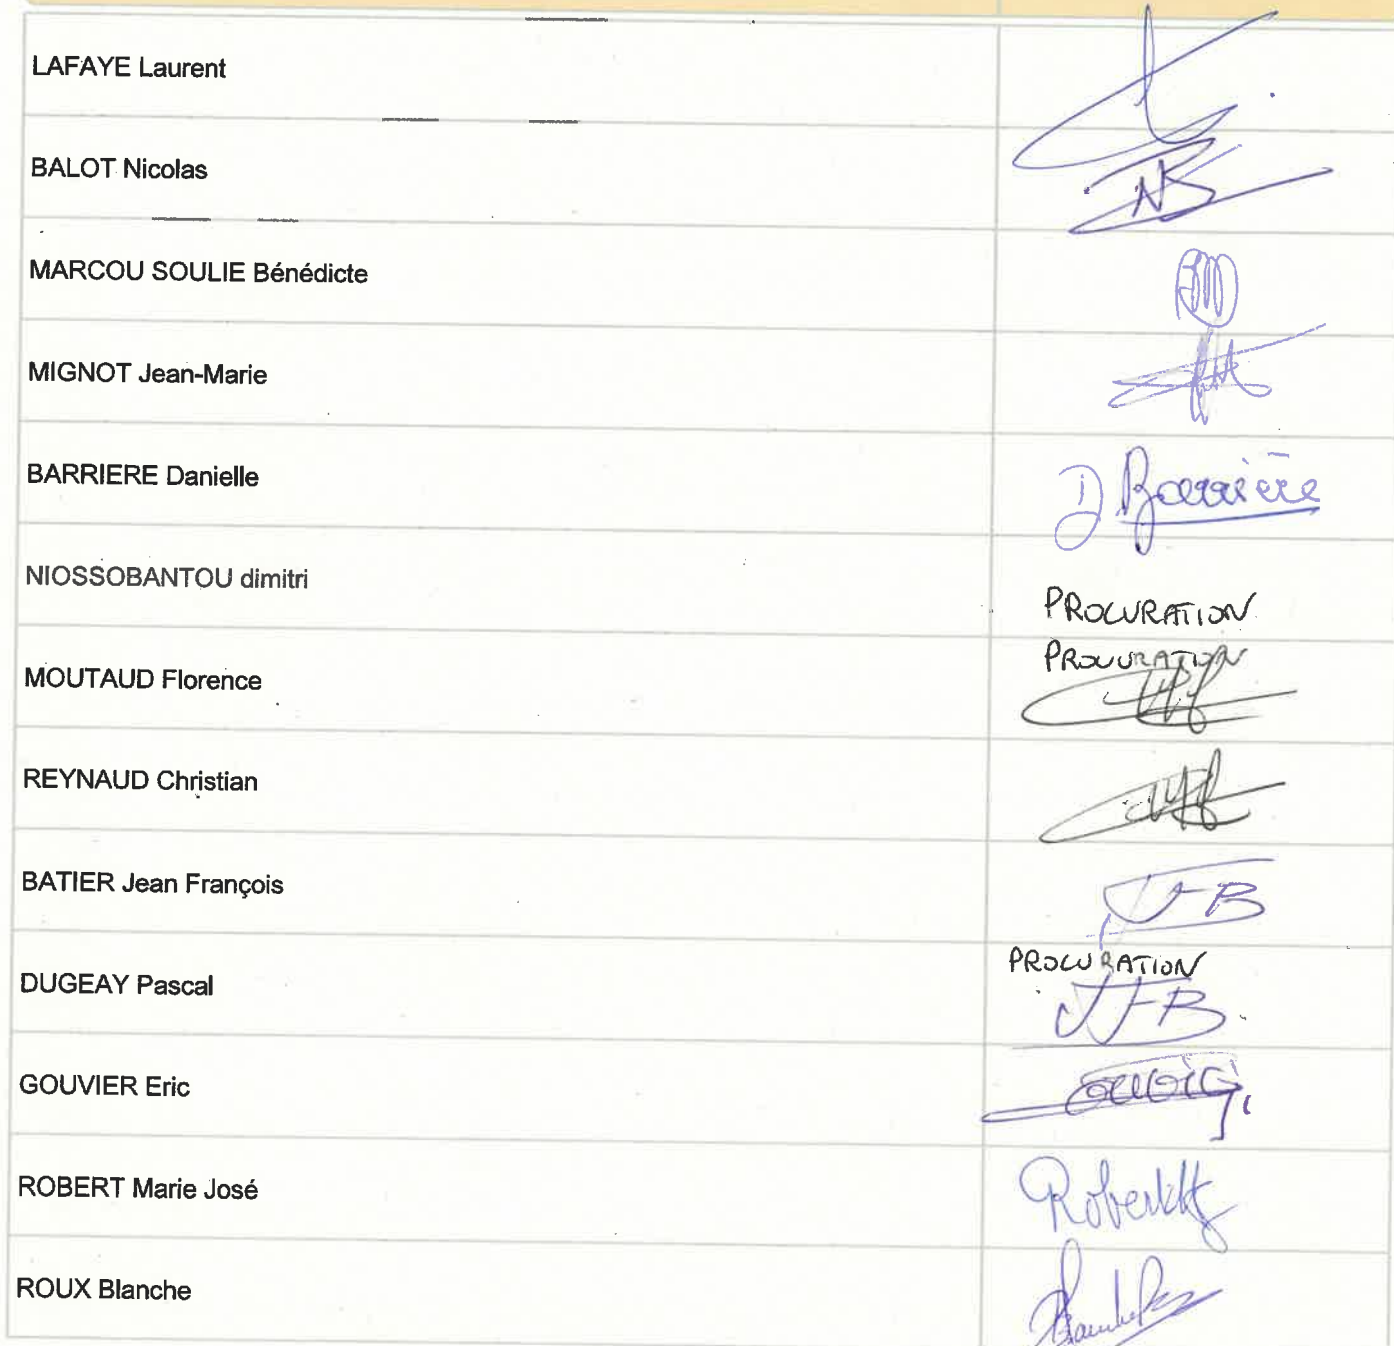 LAFAYE Laurent
BALOT Nicolas
NB
MARCOU SOULIE Bénédicte
MIGNOT Jean-Marie
BARRIERE Danielle
D Barrière
NIOSSOBANTOU dimitri
PROCURATION
MOUTAUD Florence
PROCURATION
REYNAUD Christian
BATIER Jean François
JFB
DUGEAY Pascal
PROCURATION
JFB
GOUVIER Eric
ROBERT Marie José
ROUX Blanche